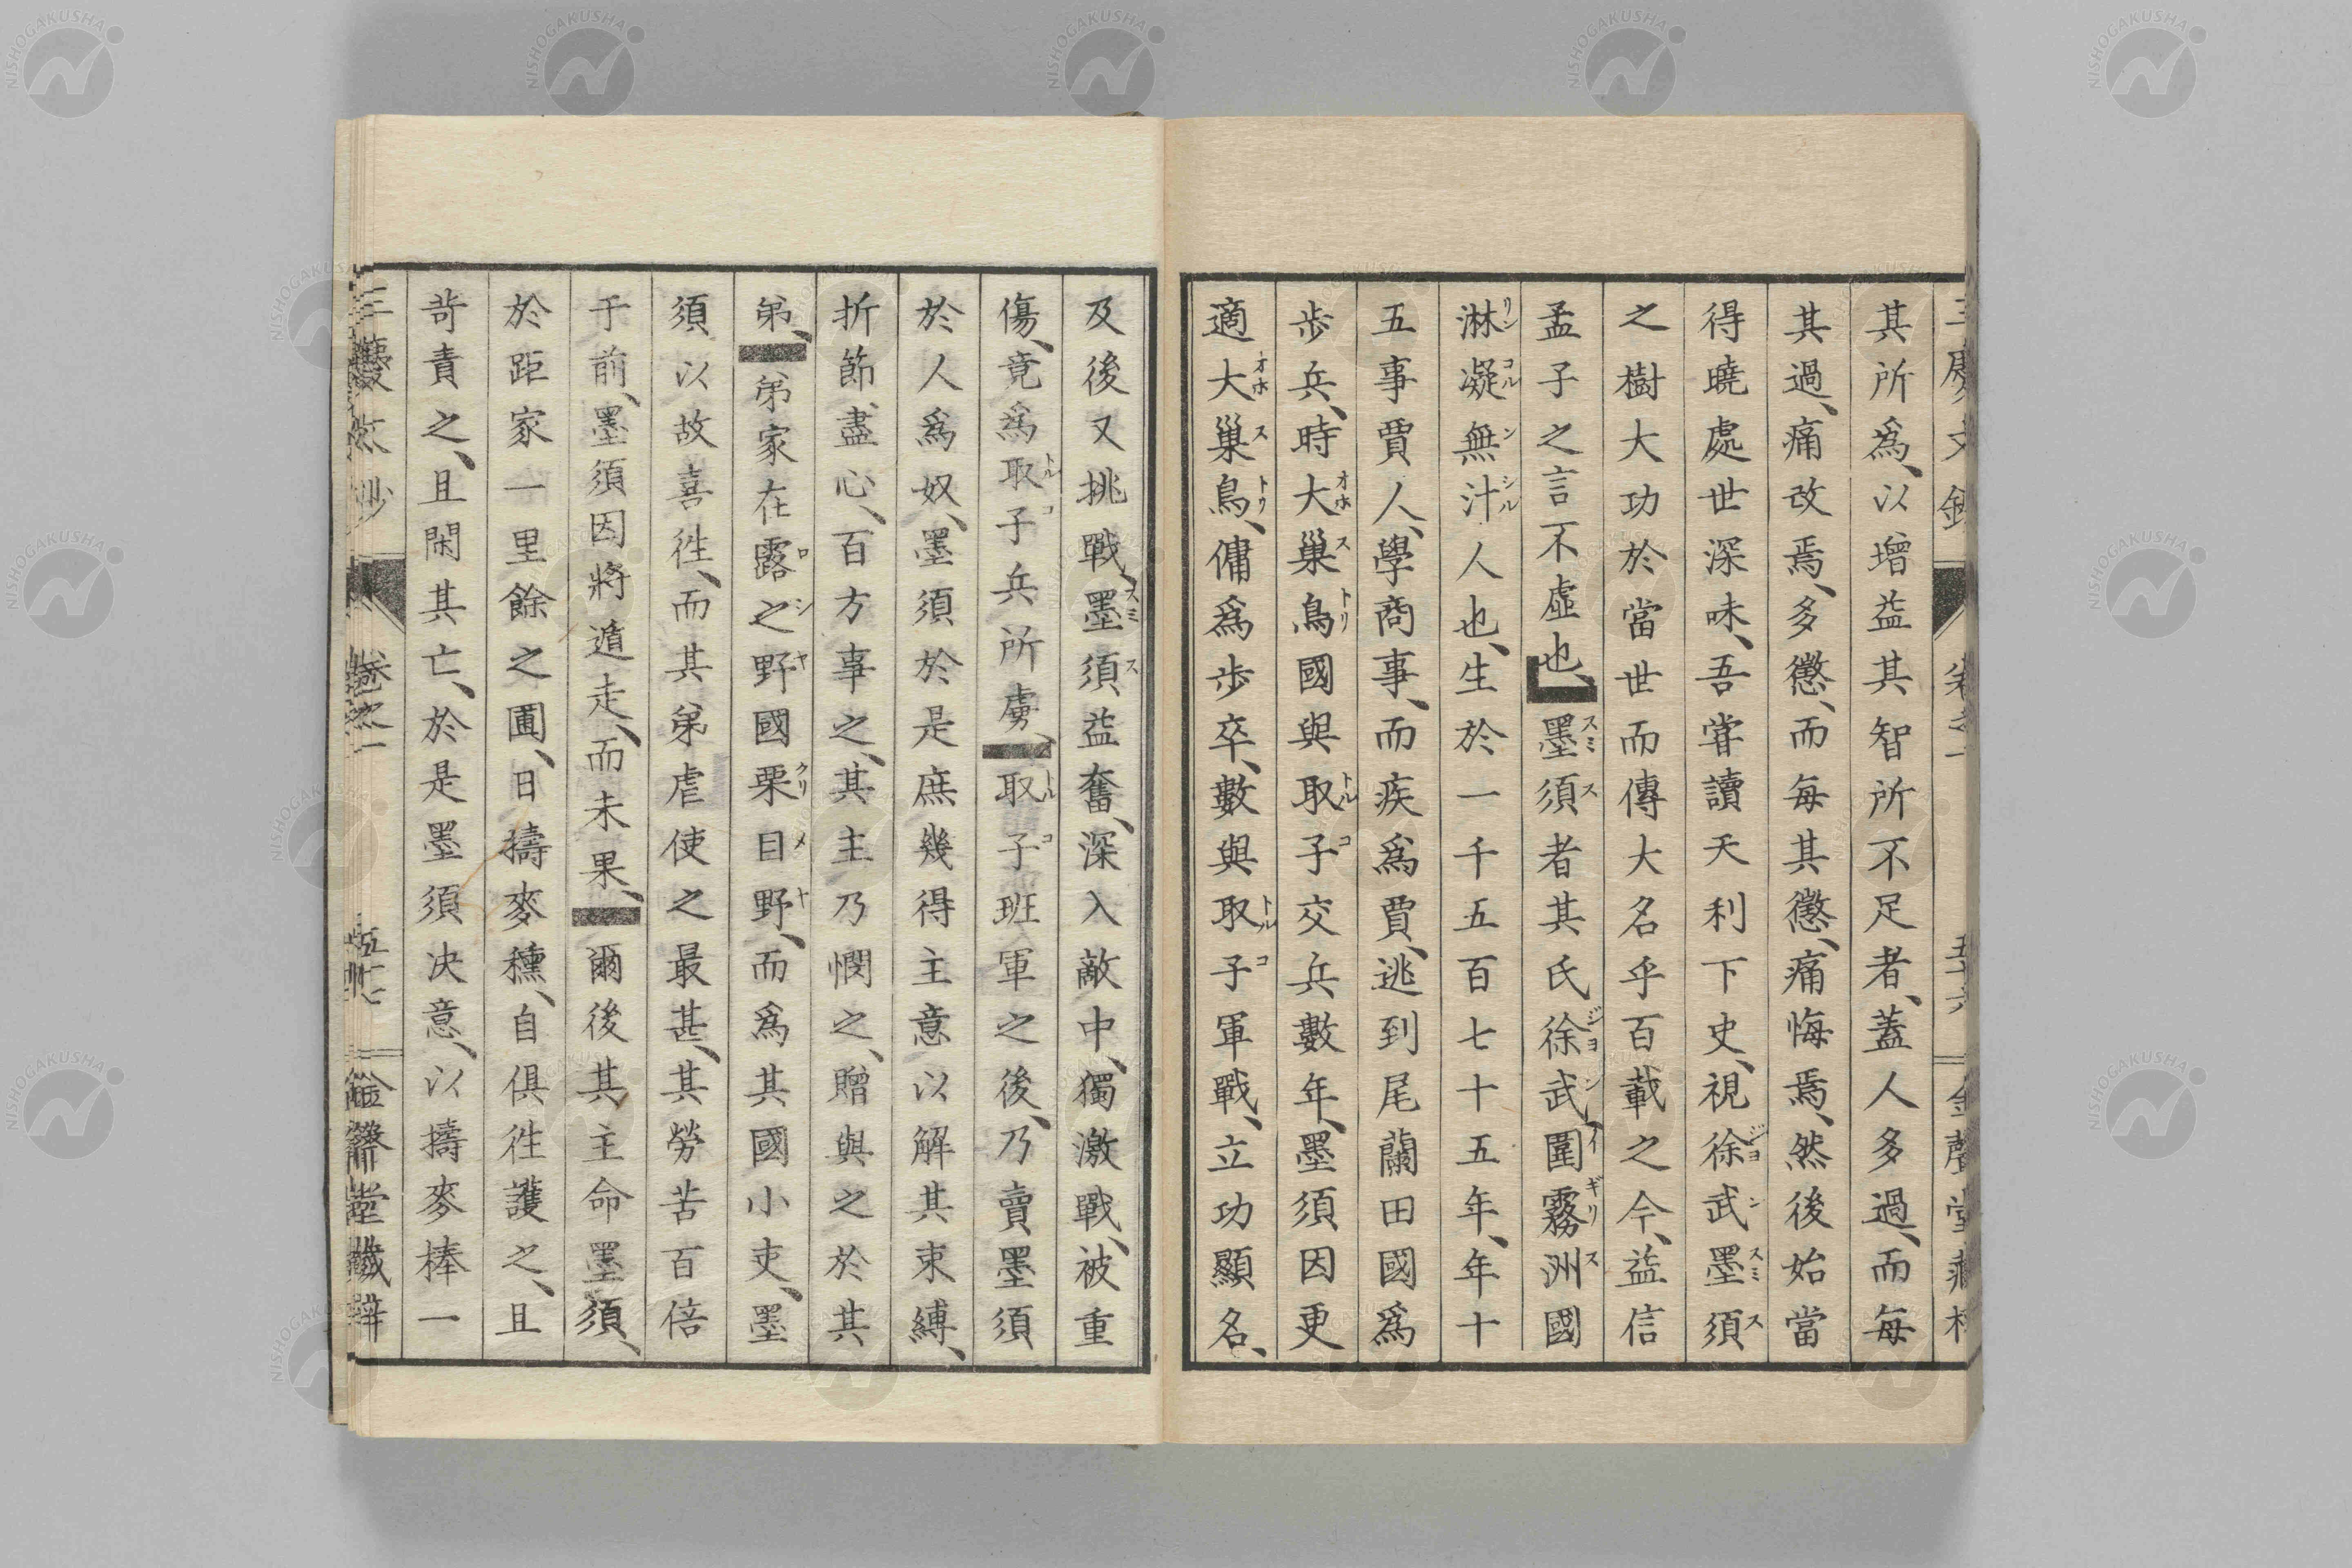 其所爲、以增益其智所不足者、蓋人多過、而每
其過、痛改焉、多懲、而每其懲、痛悔焉、然後始當
得曉處世深味、吾嘗讀天利下史、視徐武墨須
之樹大功於當世而傳大名乎百載之今、益信
孟子之言不虛也、墨須者其氏徐武圍霧洲國
淋凝無汁人也、生於一千五百七十五年、年十
五事賈人、學商事、而疾爲賈、逃到尾蘭田國爲
步兵、時大巢鳥國與取子交兵數年、墨須因更
適大巢鳥、傭爲步卒、數與取子軍戰、立功顯名、
及後又挑戰、墨須、益奮、深入敵中、獨激戰、被重
傷、竟爲取子兵所虜、取子班軍之後、乃賣墨須
於人爲奴、墨須於是庶幾得主意以解其束縛、
折節盡心、百方事之、其主乃憫之、贈與之於其
弟、弟家在露之野國栗目野、而爲其國小吏、墨
須以故喜徃、而其弟虐使之最甚、其勞苦百倍
于前、墨須因將遁走、而未果、爾後其主命墨須、
於距家一里餘之圃、日擣麥穗、自俱徃護之、且
苛責之、且閑其亡、於是墨須決意、以擣麥棒一